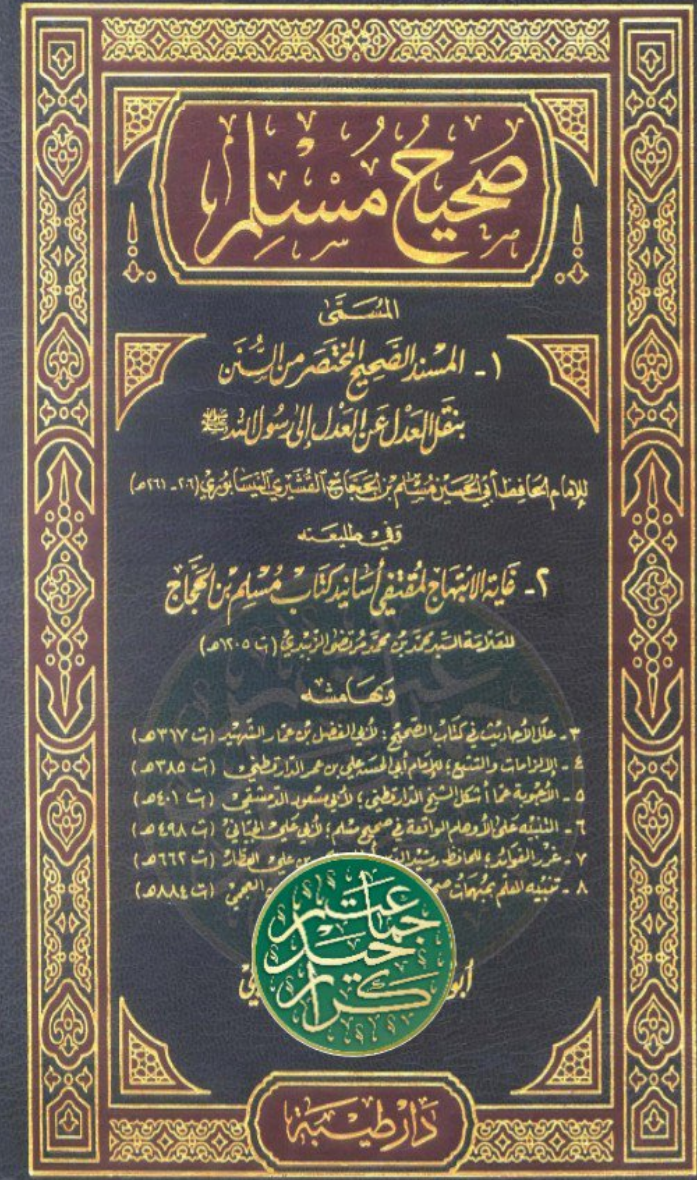 صَحِيحُ مُسْلِمٍ
المُسَمَّى
١- المسند الصَّحِيح المختصَر من السُّنَن
بنقل العَدل عَن العَدل إلى رسُول الله ﷺ
للإمام الحَافِظ أبي الحُسَين مُسْلم بن الحَجاج القُشَيري النيسَابوري (٢٠٦-٢٦١ه)
وَفي طليعَته
٢- غَاية الابتهاج لمقتفي أسَانيد كتَاب مُسْلم بن الحَجَّاج
للعَلّامَة السَّيد محمّد بن محمّد مرتضى الزَّبيدي (ت ١٢٠٥ه)
وَبهَامشه
٣- علل الأحاديث في كتاب الصَّحيح؛ لأبي الفضل بن عمّار الشَّهيد (ت ٣١٧ هـ)
٤- الإلزامات والتتبع؛ للإمام أبي الحسَن علي بن عمر الدّارقطني (ت ٣٨٥ هـ)
٥- الأجوبة عمّا أشكل الشيخ الدّارقطني؛ لأبي مسعود الدّمشقي (ت ٤٠١ هـ)
٦- التنبيه على الأوهام الواقعة في صحيح مسلم؛ لأبي علي الجيّاني (ت ٤٩٨ هـ)
٧- غرر الفوائد؛ للحافظ رشيد بن علي العطار (ت ٦٦٢ هـ)
٨- تنبيه المعلم بمبهمات العجمي (ت ٨٨٤ هـ)
دَار طَيبَة